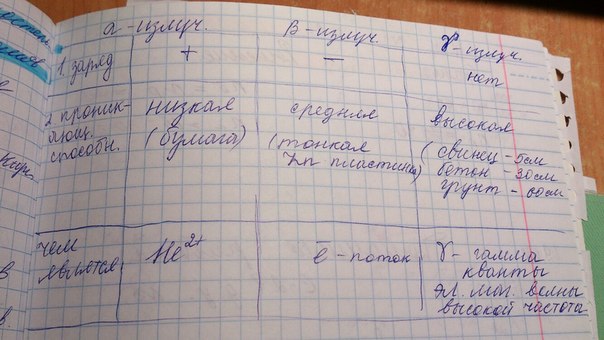 α-излуч. β-излуч. γ-излуч.
1. заряд + − нет
2 проник-
ающ.
способн.
низкая
(бумага)
средняя
(тонкая
Zn пластинка)
высокая
(свинец - 5см
бетон - 30см
грунт - 60см
чем
является
He²⁺
ē - поток
γ - гамма
кванты
эл. маг. волны
высокой частоты